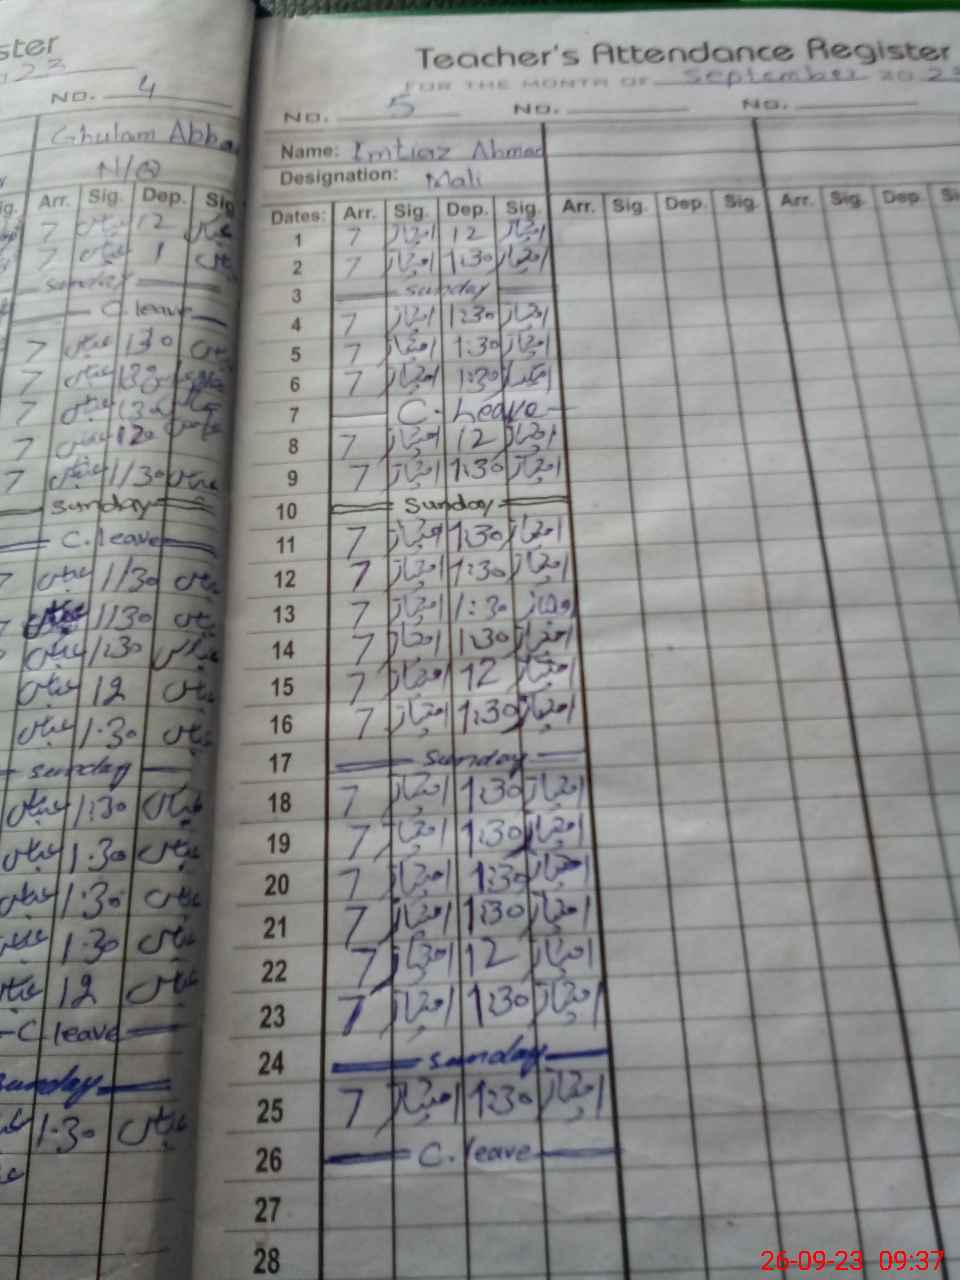 ster
23
NO. 4
Ghulam Abba
N/Q
ig. Arr. Sig. Dep. Sig
7 عباس 12 عباس
7 عباس 1 عباس
Sunday
C. leave
7 عباس 130 عباس
7 عباس 130 عباس
7 عباس 130
عباس 120
7 عباس 1/30 عباس
Sunday
C. leave
7 عباس 1/30 عباس
7 عباس 1/30 عباس
7 عباس 1:30 عباس
عباس 12 عباس
عباس 1.30 عباس
Sunday
عباس 1:30 عباس
عباس 1.30 عباس
عباس 1.30 عباس
عباس 1.30 عباس
عباس 12 عباس
C. leave
Sunday
1.30 عباس
Teacher's Attendance Register
FOR THE MONTH OF September 2023
NO. 5 NO. NO.
Name: Imtiaz Ahmad
Designation: Mali
Dates: Arr. Sig. Dep. Sig. Arr. Sig. Dep. Sig. Arr. Sig. Dep. Si
1 7 امتیاز 12 امتیاز
2 7 امتیاز 1:30 امتیاز
3 Sunday
4 7 امتیاز 1:30 امتیاز
5 7 امتیاز 1:30 امتیاز
6 7 امتیاز 1:30 امتیاز
7 C. Leave
8 7 امتیاز 12 امتیاز
9 7 امتیاز 1:30 امتیاز
10 Sunday
11 7 امتیاز 1:30 امتیاز
12 7 امتیاز 1:30 امتیاز
13 7 امتیاز 1:30 امتیاز
14 7 امتیاز 1:30 امتیاز
15 7 امتیاز 12 امتیاز
16 7 امتیاز 1:30 امتیاز
17 Sunday
18 7 امتیاز 1:30 امتیاز
19 7 امتیاز 1:30 امتیاز
20 7 امتیاز 1:30 امتیاز
21 7 امتیاز 1:30 امتیاز
22 7 امتیاز 12 امتیاز
23 7 امتیاز 1:30 امتیاز
24 Sunday
25 7 امتیاز 1:30 امتیاز
26 C. leave
27
28
26-09-23 09:37